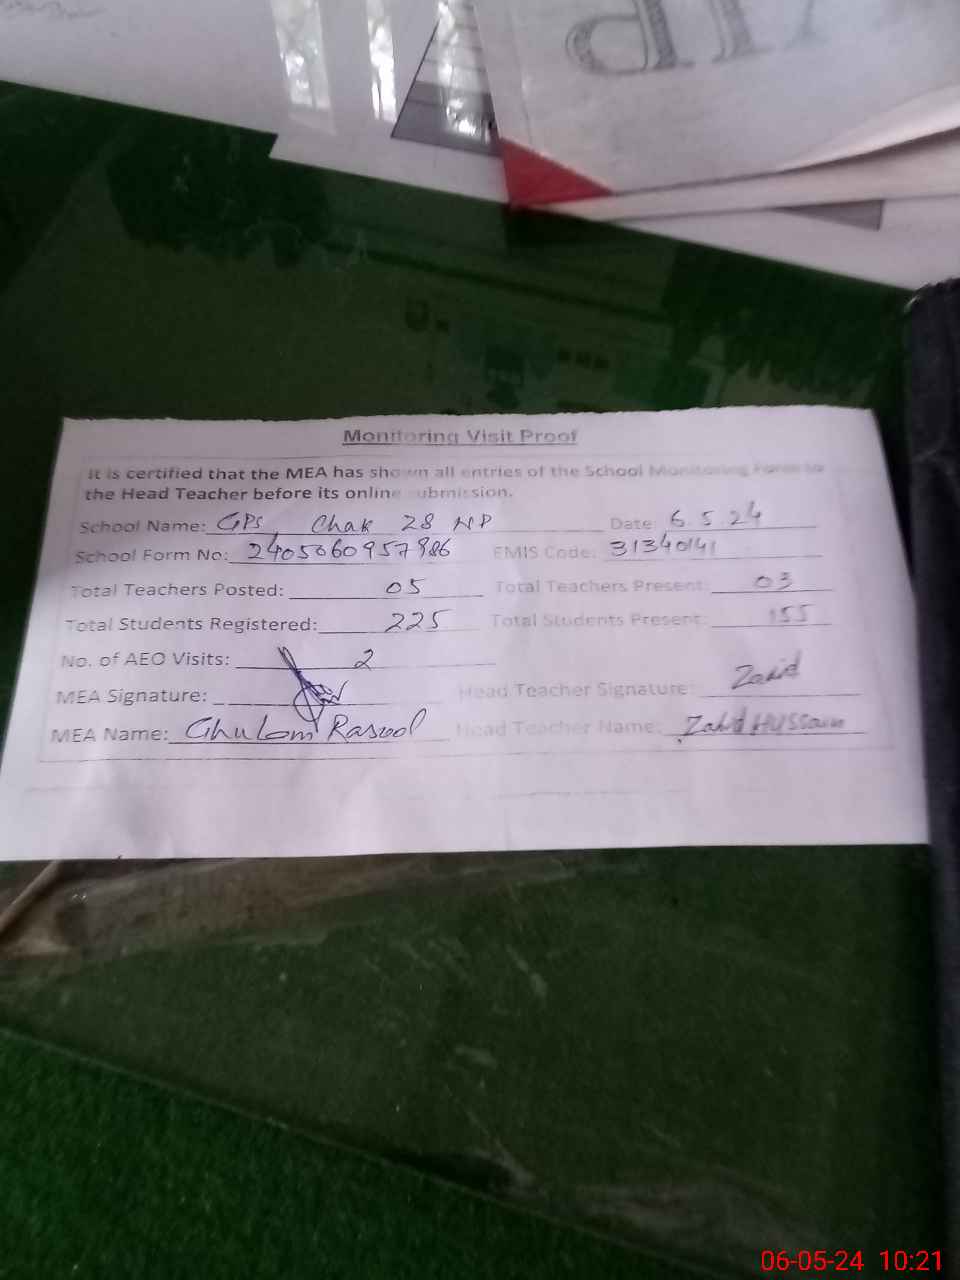 Monitoring Visit Proof
It is certified that the MEA has shown all entries of the School Monitoring Form to
the Head Teacher before its online submission.
School Name: GPS Chak 28 NP Date: 6.5.24
School Form No: 2405060957986 EMIS Code: 31340141
Total Teachers Posted: 05 Total Teachers Present: 03
Total Students Registered: 225 Total Students Present: 155
No. of AEO Visits: 2
MEA Signature: Head Teacher Signature: Zahid
MEA Name: Ghulam Rasool Head Teacher Name: Zahid Hussain
06-05-24 10:21